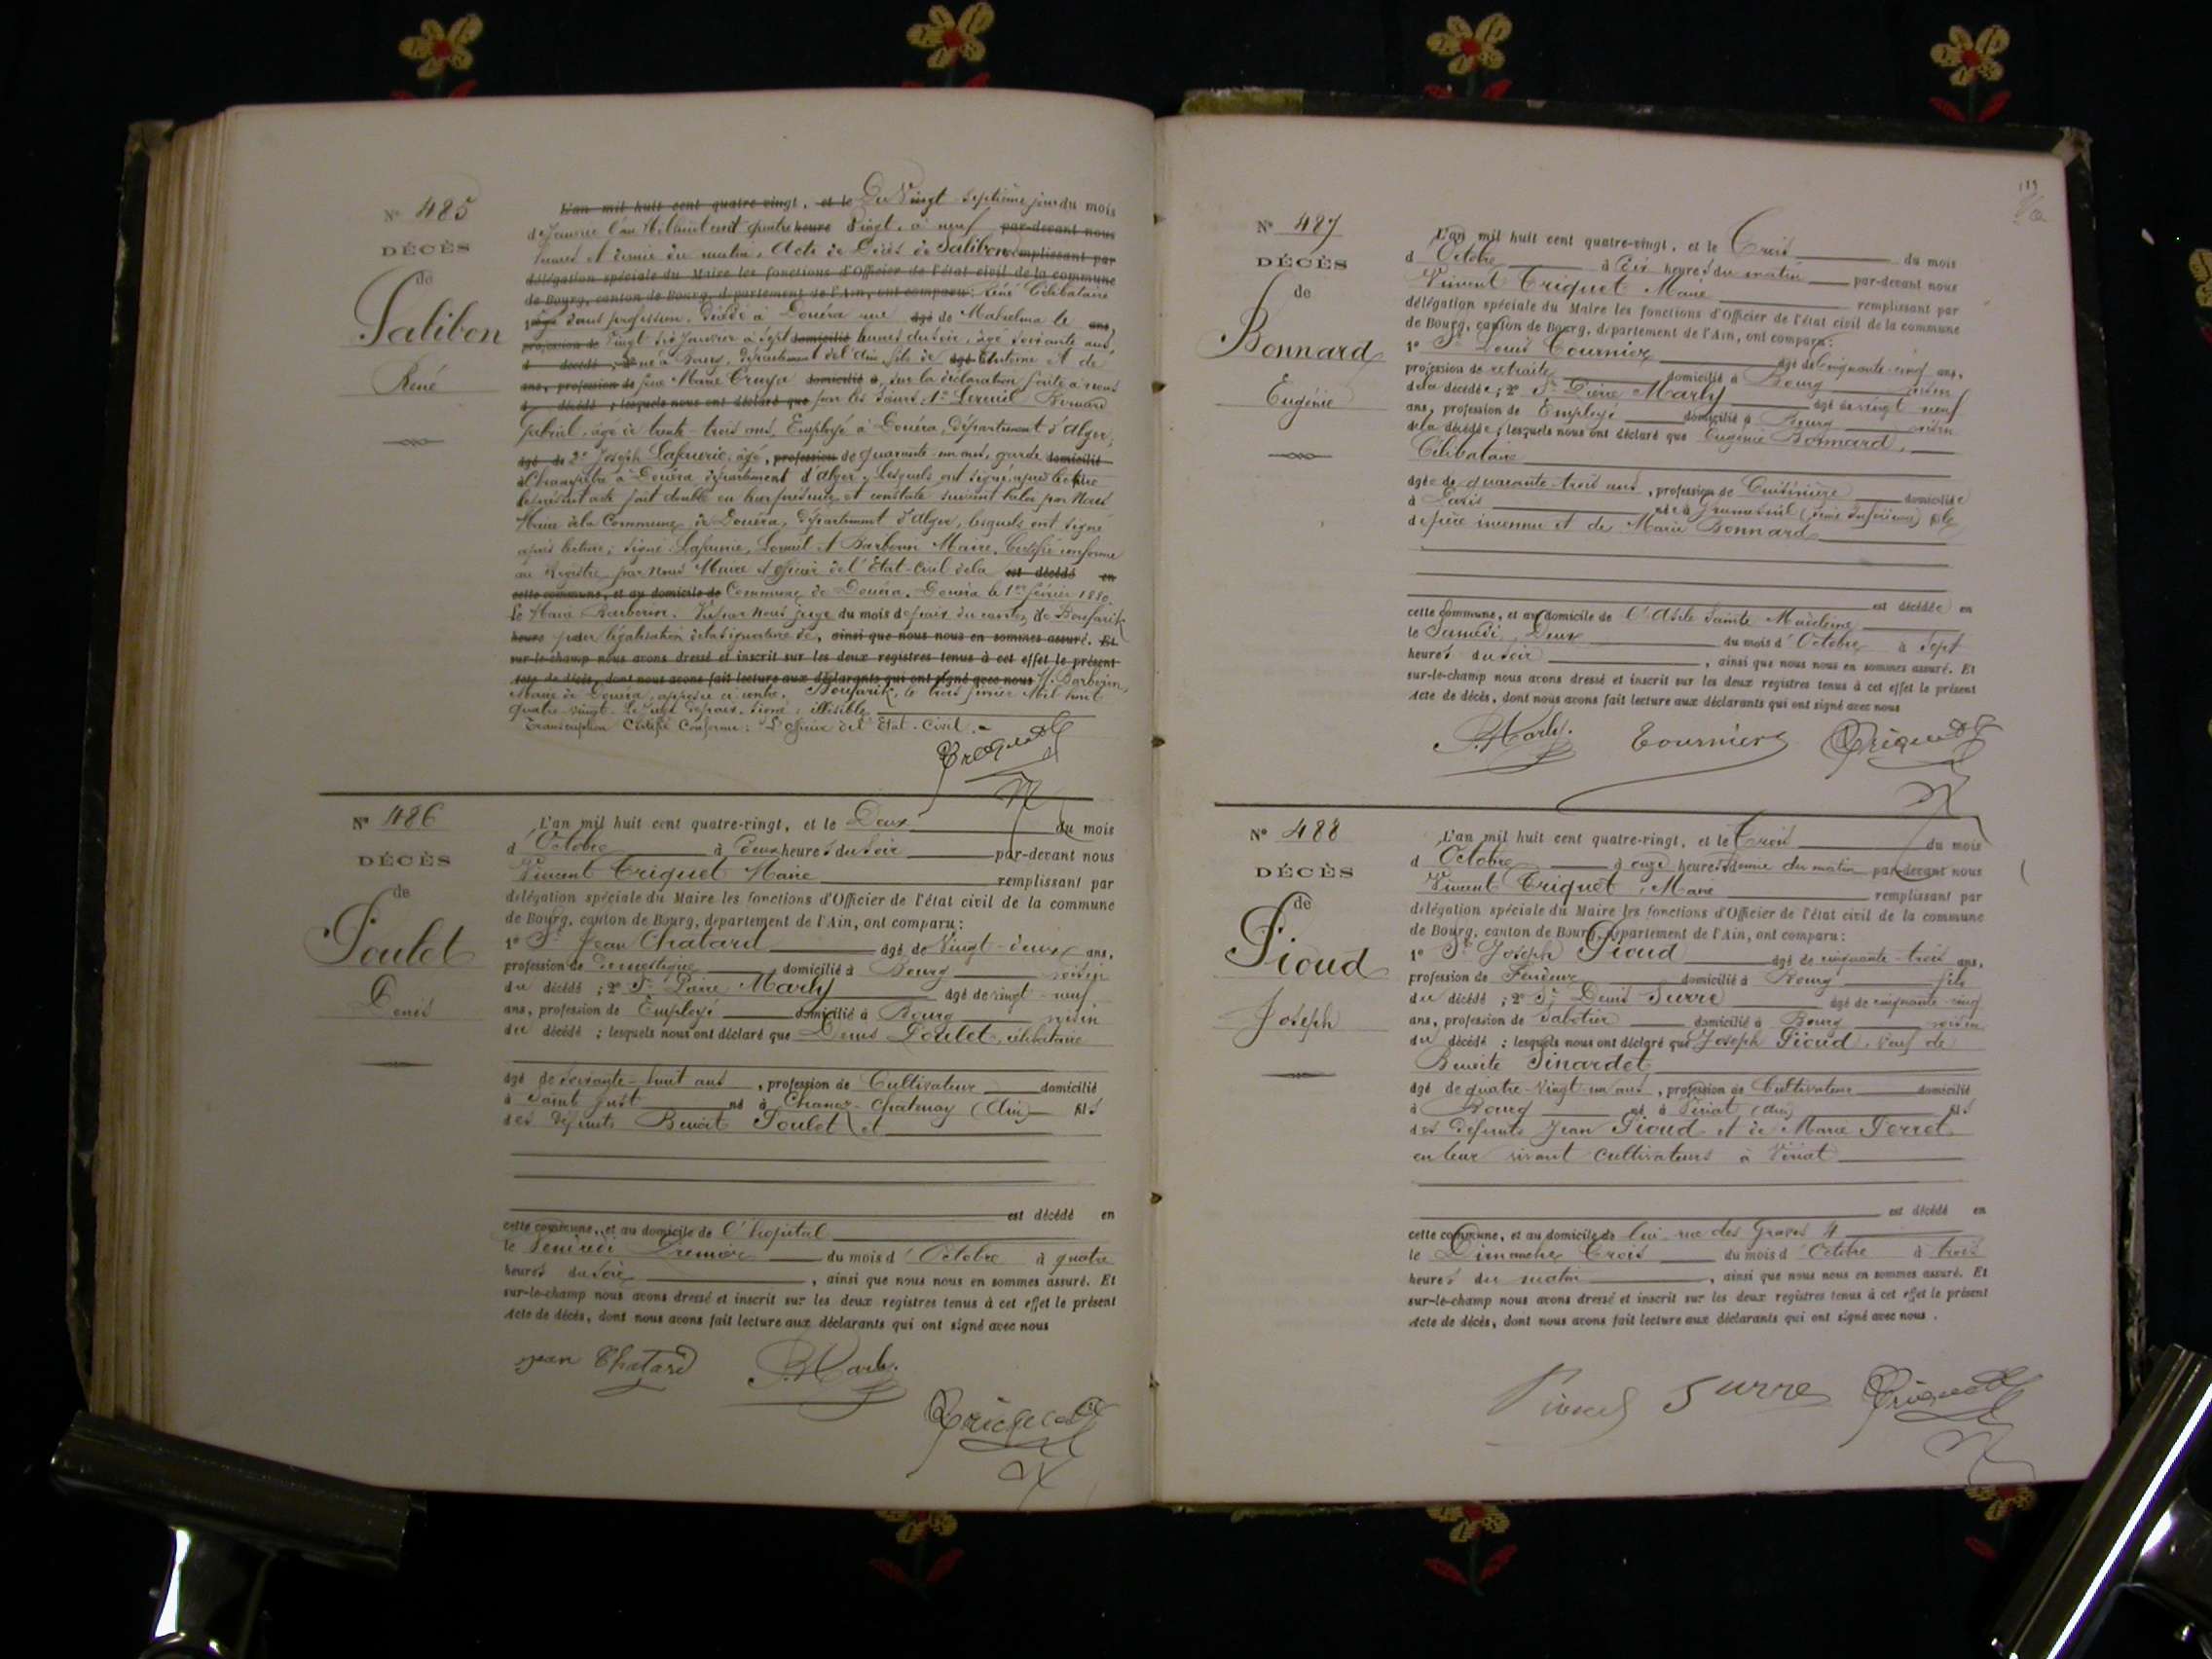 N° 485
DÉCÈS
de
Salibon
René
L'an mil huit cent quatre-vingt, et le Du Vingt Septième jour du mois
de Janvier l'an Mil huit cent quatre heure Vingt, à neuf par-devant nous
heures et demie du matin, Acte de Décès de Salibon remplissant par
délégation spéciale du Maire les fonctions d'Officier de l'état civil de la commune
de Bourg, canton de Bourg, département de l'Ain, ont comparu: René Célibataire
sans profession, décédé à Douéra rue âgé de Mahelma le ans,
profession de vingt six Janvier à Sept domicilié heures du soir, âgé soixante ans,
d décédé; 2° né à Bourg, département de l'Ain, fils de âgé de Antoine et de
ans, profession de feue Marie domicilié à, sur la déclaration faite à nous
d décédé; lesquels nous ont déclaré que par les Sieurs 1° Bernard
Gabriel, âgé de trente-trois ans, Employé à Douéra, Département d'Alger,
âgé de 2° Joseph Lafaurie, âgé, profession de quarante-un ans, garde domicilié
Champêtre à Douéra département d'Alger, lesquels ont signé après lecture
le présent acte fait double en leur présence et constaté suivant la loi par Nous
Maire de la Commune de Douéra, Département d'Alger, lesquels ont signé
après lecture; Signé: Lafaurie, et Barberin Maire. Certifié conforme
au Registre par Nous Maire et officier de l'Etat-Civil de la est décédé en
cette commune, et au domicile de Commune de Douéra. Douéra le 1er février 1880.
Le Maire Barberin. Vu par Nous juge du mois de paix du canton de Boufarik
heure pour légalisation de la signature de, ainsi que nous nous en sommes assuré. Et
sur-le-champ nous avons dressé et inscrit sur les deux registres tenus à cet effet le présent
acte de décès, dont nous avons fait lecture aux déclarants qui ont signé avec nous M. Barberin,
Maire de Douéra, apposée ci contre. Boufarik, le trois février Mil huit
quatre-vingt. Le juge de paix. Signé: illisible
Transcription Certifié Conforme: L'officier de l'Etat-Civil.
Triquet
N° 486
DÉCÈS
de
Poulet
Denis
L'an mil huit cent quatre-vingt, et le Deux du mois
d'Octobre à deux heures du soir par-devant nous
Vincent Triquet Maire remplissant par
délégation spéciale du Maire les fonctions d'Officier de l'état civil de la commune
de Bourg, canton de Bourg, département de l'Ain, ont comparu:
1° Sr Jean Chatard âgé de Vingt-deux ans,
profession de domestique domicilié à Bourg voisin
du décédé; 2° Sr Pierre Marly âgé de vingt-neuf
ans, profession de Employé domicilié à Bourg voisin
du décédé; lesquels nous ont déclaré que Denis Poulet, célibataire
âgé de soixante-huit ans, profession de Cultivateur domicilié
à Saint Just né à Chanoz-Châtenay (Ain) fils
des défunts Benoit Poulet et
est décédé en
cette commune, et au domicile de l'hopital
le Vendredi Premier du mois d'Octobre à quatre
heures du soir, ainsi que nous nous en sommes assuré. Et
sur-le-champ nous avons dressé et inscrit sur les deux registres tenus à cet effet le présent
acte de décès, dont nous avons fait lecture aux déclarants qui ont signé avec nous
Jean Chatard P. Marly Triquet
N° 487
DÉCÈS
de
Bonnard
Eugénie
L'an mil huit cent quatre-vingt, et le Trois du mois
d'Octobre à dix heures du matin par-devant nous
Vincent Triquet Maire remplissant par
délégation spéciale du Maire les fonctions d'Officier de l'état civil de la commune
de Bourg, canton de Bourg, département de l'Ain, ont comparu:
1° Sr Louis Tournier âgé de Cinquante-cinq ans,
profession de retraité domicilié à Bourg voisin
de la décédée; 2° Sr Pierre Marly âgé de vingt neuf
ans, profession de Employé domicilié à Bourg voisin
de la décédée; lesquels nous ont déclaré que Eugénie Bonnard,
Célibataire
âgée de quarante-trois ans, profession de Cuisinière domiciliée
à Paris née à Grumesnil (Seine Inférieure) fille
de père inconnu et de Marie Bonnard
est décédée en
cette commune, et au domicile de l'Asile Sainte Madeleine
le Samedi Deux du mois d'Octobre à Sept
heures du soir, ainsi que nous nous en sommes assuré. Et
sur-le-champ nous avons dressé et inscrit sur les deux registres tenus à cet effet le présent
acte de décès, dont nous avons fait lecture aux déclarants qui ont signé avec nous
P. Marly. Tournier Triquet
N° 488
DÉCÈS
de
Pioud
Joseph
L'an mil huit cent quatre-vingt, et le Trois du mois
d'Octobre à onze heures et demie du matin par-devant nous
Vincent Triquet, Maire remplissant par
délégation spéciale du Maire les fonctions d'Officier de l'état civil de la commune
de Bourg, canton de Bourg, département de l'Ain, ont comparu:
1° Sr Joseph Pioud âgé de cinquante-trois ans,
profession de domicilié à Bourg fils
du décédé; 2° Sr Denis Surre âgé de cinquante-cinq
ans, profession de Sabotier domicilié à Bourg voisin
du décédé; lesquels nous ont déclaré que Joseph Pioud, Veuf de
Benoite Pinardet
âgé de quatre-vingt-un ans, profession de Cultivateur domicilié
à Bourg né à Viriat (Ain) fils
des défunts Jean Pioud et de Marie Perret
en leur vivant cultivateurs à Viriat
est décédé en
cette commune, et au domicile de lui rue des Graves 4
le Dimanche Trois du mois d'Octobre à trois
heures du matin, ainsi que nous nous en sommes assuré. Et
sur-le-champ nous avons dressé et inscrit sur les deux registres tenus à cet effet le présent
acte de décès, dont nous avons fait lecture aux déclarants qui ont signé avec nous.
Pioud Surre Triquet